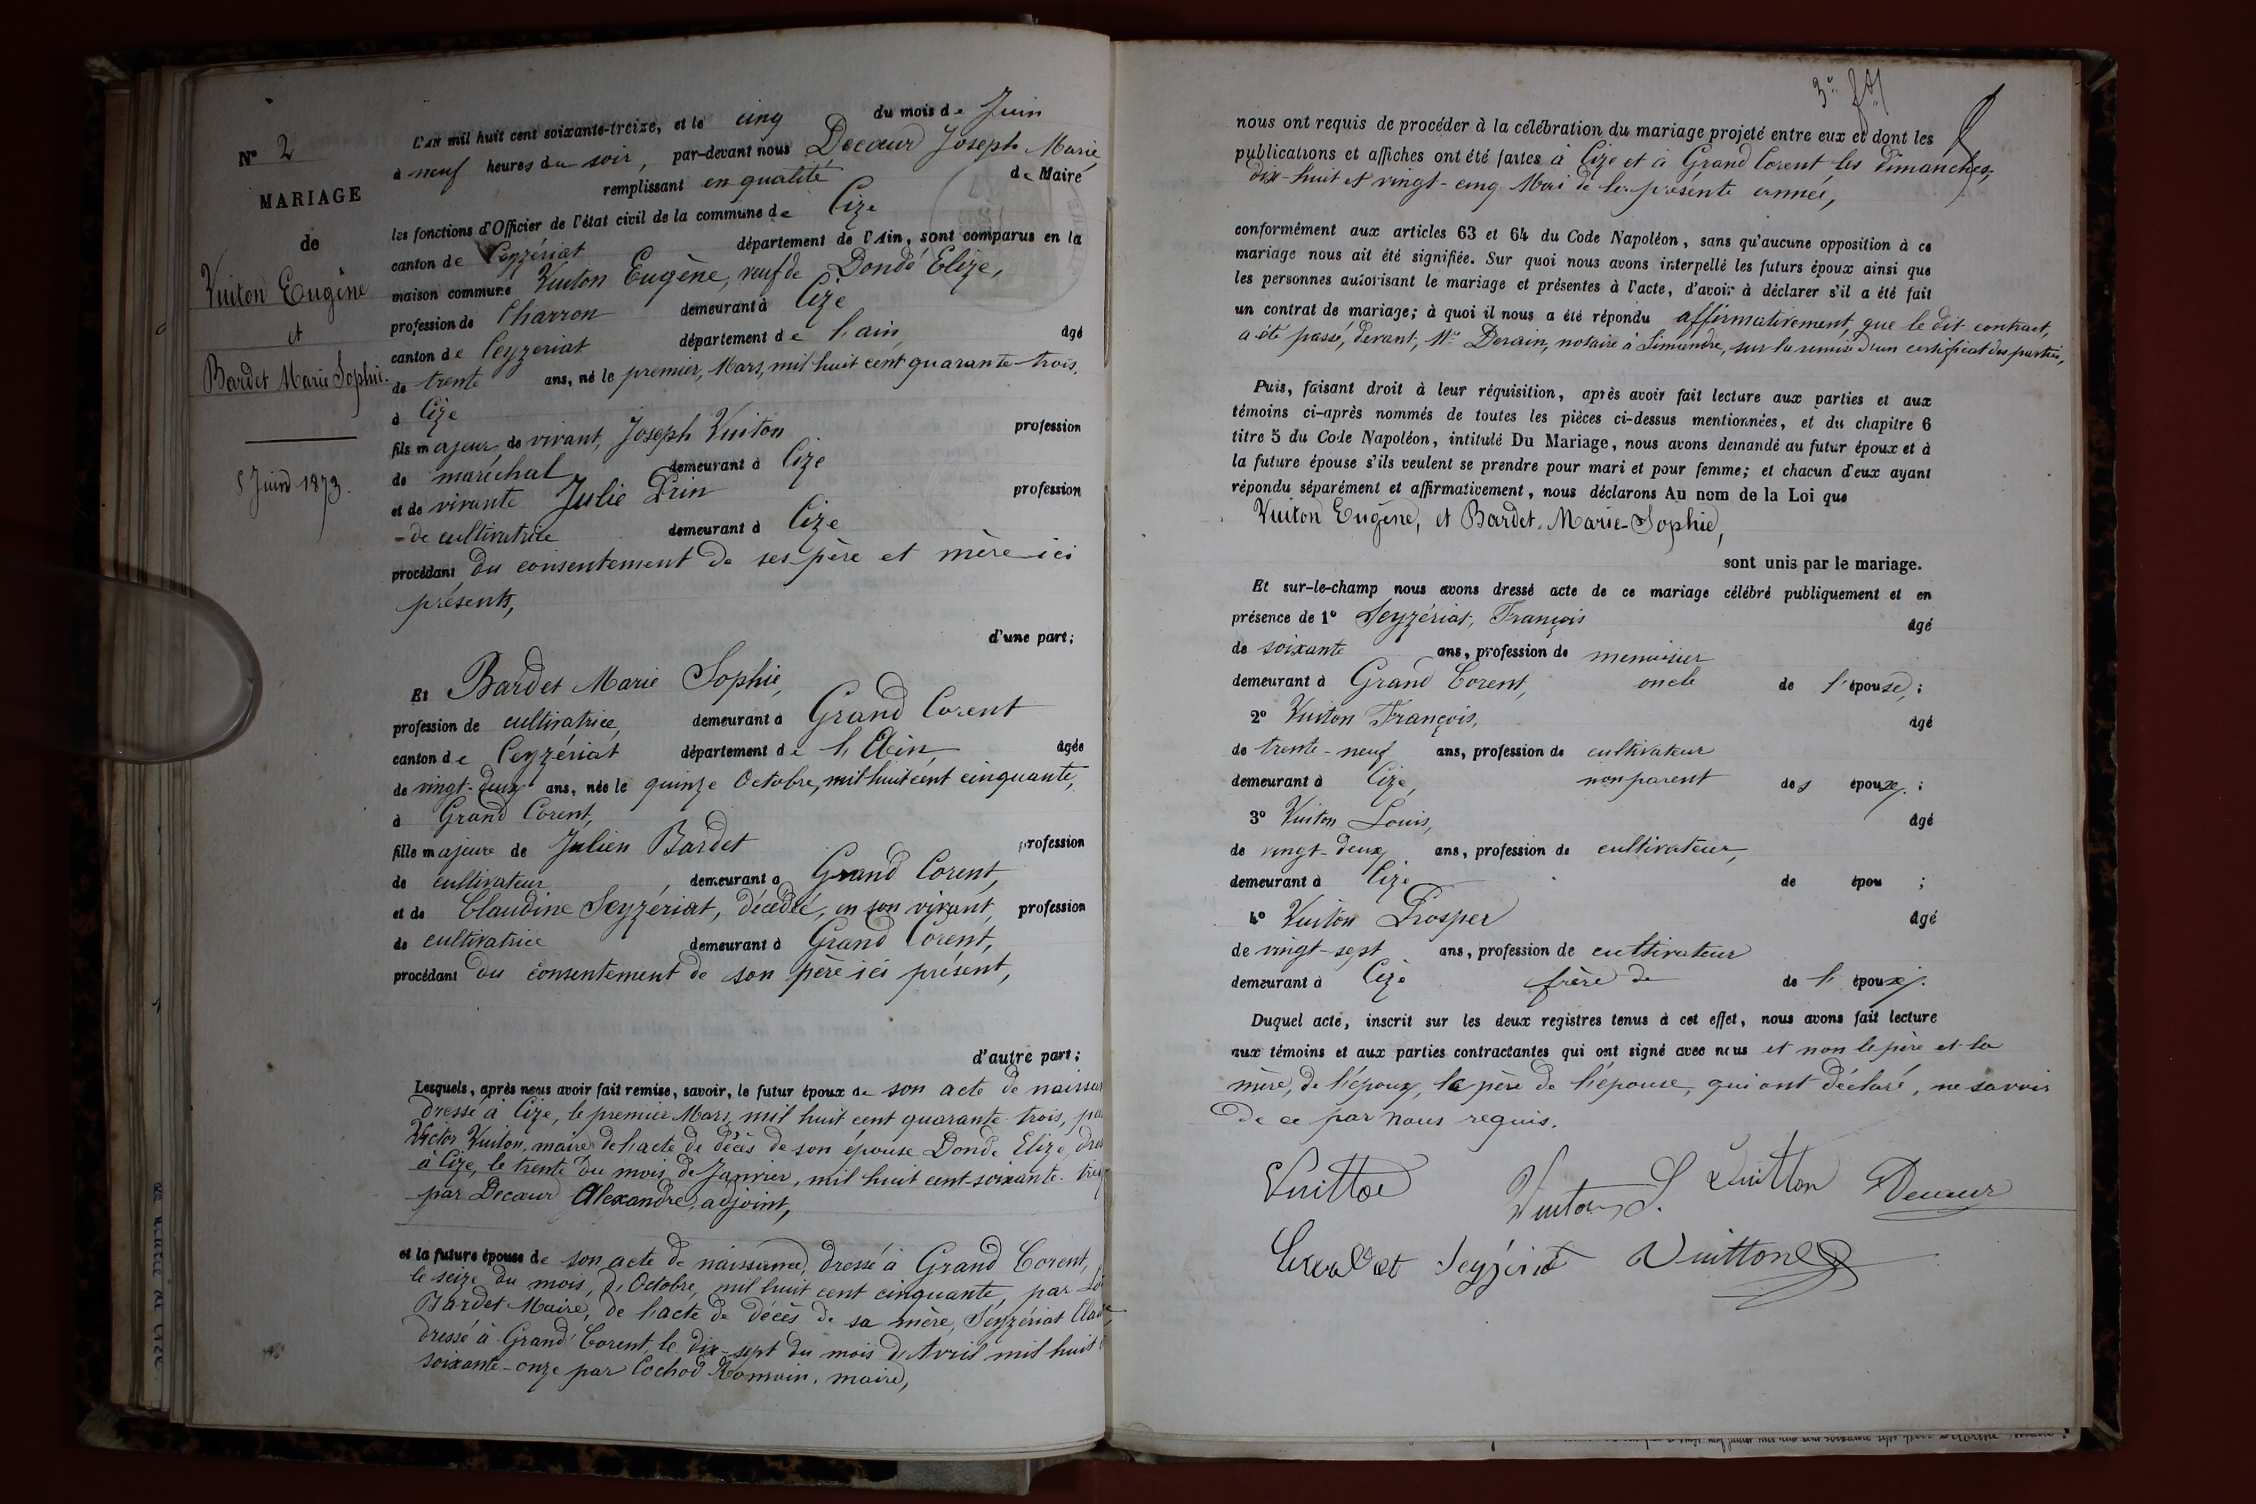 N° 2
MARIAGE
de
Vuiton Eugène
et
Bardet Marie Sophie.
5 Juin 1873.
L'AN mil huit cent soixante-treize, et le cinq du mois de Juin
à neuf heures du soir, par-devant nous Decœur Joseph Marie,
remplissant en qualité de Maire
les fonctions d'Officier de l'état civil de la commune de Cize
canton de Ceyzériat département de l'Ain, sont comparus en la
maison commune Vuiton Eugène, veuf de Dondé Elize,
profession de Charron demeurant à Cize
canton de Ceyzeriat département de l'ain, âgé
de trente ans, né le premier, Mars, mil huit cent quarante-trois,
à Cize
fils majeur, de vivant, Joseph Vuiton profession
de maréchal demeurant à Cize
et de vivante Julie Prin profession
de cultivatrice demeurant à Cize
procédant du consentement de ses père et mère ici
présents,
d'une part;
Et Bardet Marie Sophie,
profession de cultivatrice, demeurant à Grand Corent
canton de Ceyzériat département de l'Ain, âgée
de vingt-deux ans, née le quinze Octobre, mil huit cent cinquante,
à Grand Corent,
fille majeure de Julien Bardet profession
de cultivateur demeurant à Grand Corent,
et de Claudine Seyzériat, décédée, en son vivant, profession
de cultivatrice demeurant à Grand Corent,
procédant du consentement de son père ici présent,
d'autre part;
Lesquels, après nous avoir fait remise, savoir, le futur époux de son acte de naissan
dressé à Cize, le premier Mars, mil huit cent quarante-trois, pa
Victor Vuiton, maire, de l'acte de décès de son épouse Dondé Elize, dres
à Cize, le trente du mois de Janvier, mil huit cent-soixante-trei
par Decœur Alexandre, adjoint,
et la future épouse de son acte de naissance, dressé à Grand Corent,
le seize du mois, d'Octobre, mil huit cent cinquante, par
Bardet Maire, de l'acte de décès de sa mère, Seyzériat Clau
dressé à Grand Corent, le dix-sept du mois d'Avril mil huit
soixante-onze par Cochod Romain, maire,
nous ont requis de procéder à la célébration du mariage projeté entre eux et dont les
publications et affiches ont été faites à Cize et à Grand Corent les dimanches,
dix-huit et vingt-cinq Mai de la présente année,
conformément aux articles 63 et 64 du Code Napoléon, sans qu'aucune opposition à ce
mariage nous ait été signifiée. Sur quoi nous avons interpellé les futurs époux ainsi que
les personnes autorisant le mariage et présentes à l'acte, d'avoir à déclarer s'il a été fait
un contrat de mariage; à quoi il nous a été répondu affirmativement, que le dit contract,
a été passé, devant, Me Derain, notaire à Simandre, sur la remise d'un certificat des parties,
Puis, faisant droit à leur réquisition, après avoir fait lecture aux parties et aux
témoins ci-après nommés de toutes les pièces ci-dessus mentionnées, et du chapitre 6
titre 5 du Code Napoléon, intitulé Du Mariage, nous avons demandé au futur époux et à
la future épouse s'ils veulent se prendre pour mari et pour femme; et chacun d'eux ayant
répondu séparément et affirmativement, nous déclarons Au nom de la Loi que
Vuiton Eugène, et Bardet, Marie-Sophie,
sont unis par le mariage.
Et sur-le-champ nous avons dressé acte de ce mariage célébré publiquement et en
présence de 1° Seyzériat, François âgé
de soixante ans, profession de menuisier
demeurant à Grand Corent, oncle de l'épouse, ;
2° Vuiton François, âgé
de trente-neuf ans, profession de cultivateur
demeurant à Cize, non parent des époux, ;
3° Vuiton Louis, âgé
de vingt-deux ans, profession de cultivateur,
demeurant à Cize de épou ;
4° Vuiton Prosper âgé
de vingt-sept ans, profession de cultivateur
demeurant à Cize frère de de l'époux.
Duquel acte, inscrit sur les deux registres tenus à cet effet, nous avons fait lecture
aux témoins et aux parties contractantes qui ont signé avec nous et non le père et la
mère, de l'époux, le père de l'épouse, qui ont déclaré, ne savoir
de ce par nous requis.
Vuitton L. Vuitton Decœur
Seyzériat Vuitton